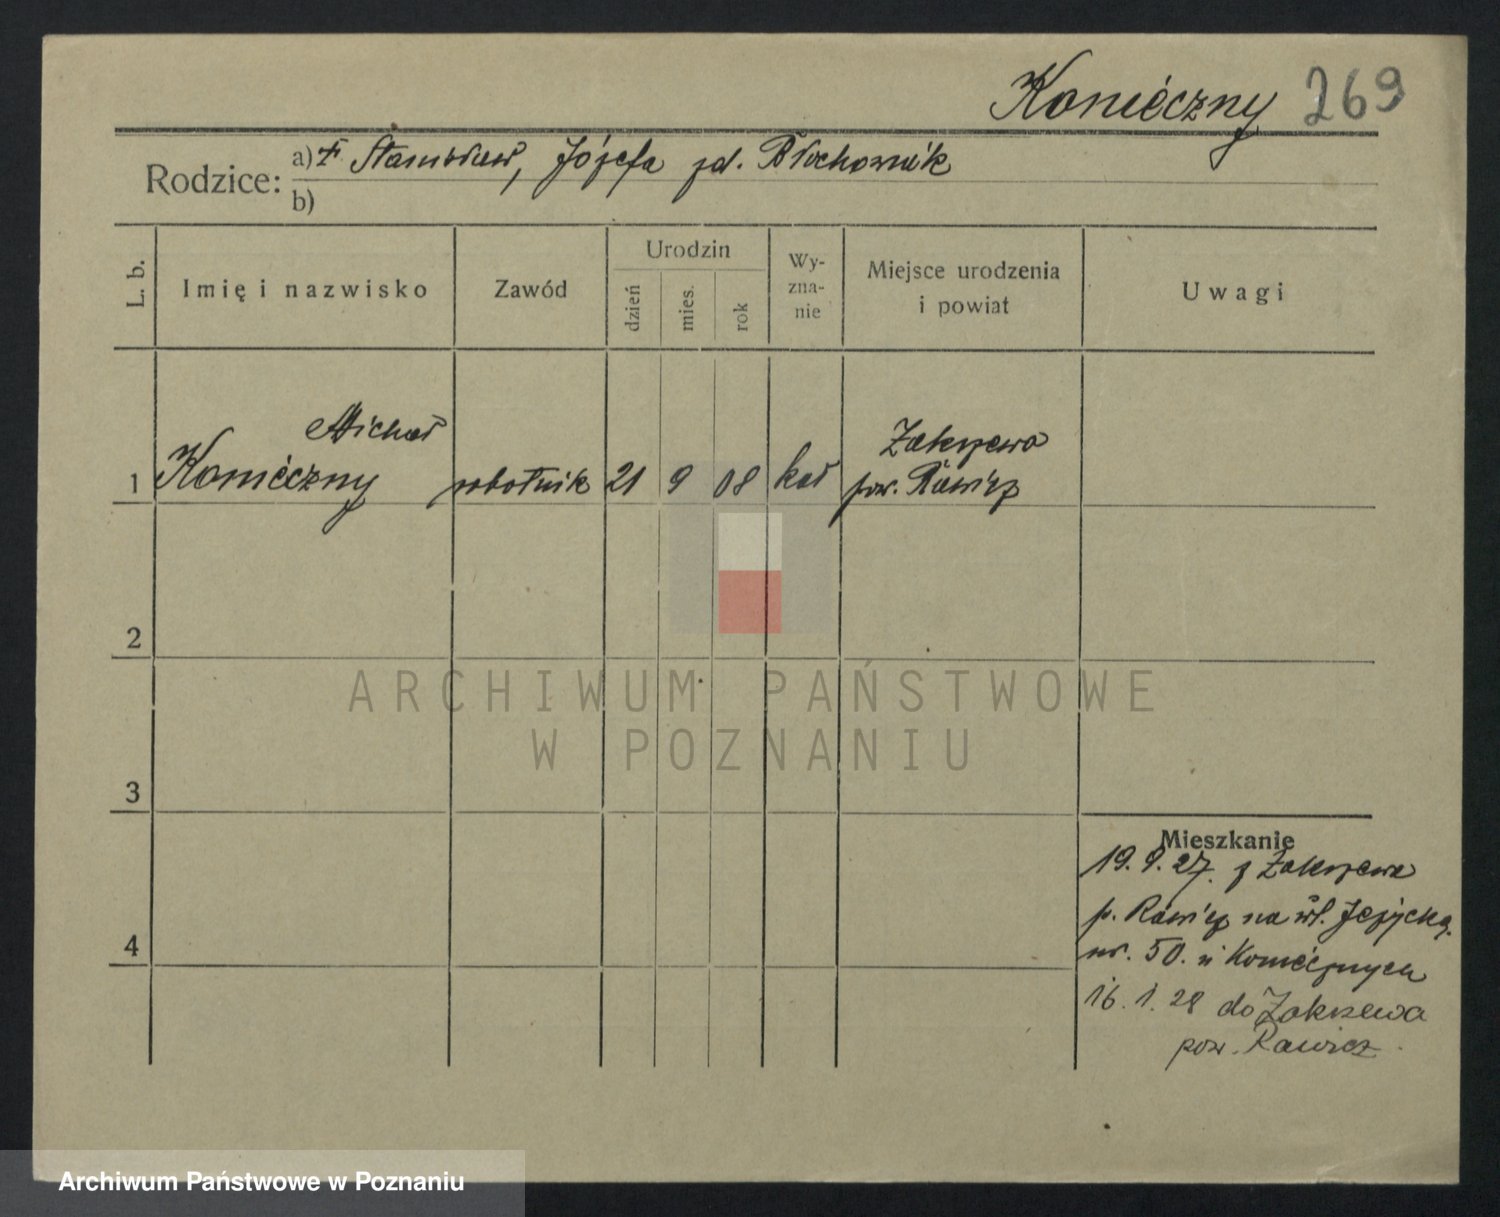 Konieczny 269
Rodzice: a) Stanisław, Józefa zd.
b)
L. b.
Imię i nazwisko
Zawód
Urodzin
dzień
mies.
rok
Wy-
zna-
nie
Miejsce urodzenia
i powiat
Uwagi
Michał
1 Konieczny robotnik 21 9 08 kat
Zakrzewo
pow. Rawicz
2
3
4
Mieszkanie
19. 9. 27. z Zakrzewa
p. Rawicz na
nr. 50. u Koniecznych
16. 1. 28 do Zakrzewa
pow. Rawicz.
ARCHIWUM PAŃSTWOWE
W POZNANIU
Archiwum Państwowe w Poznaniu